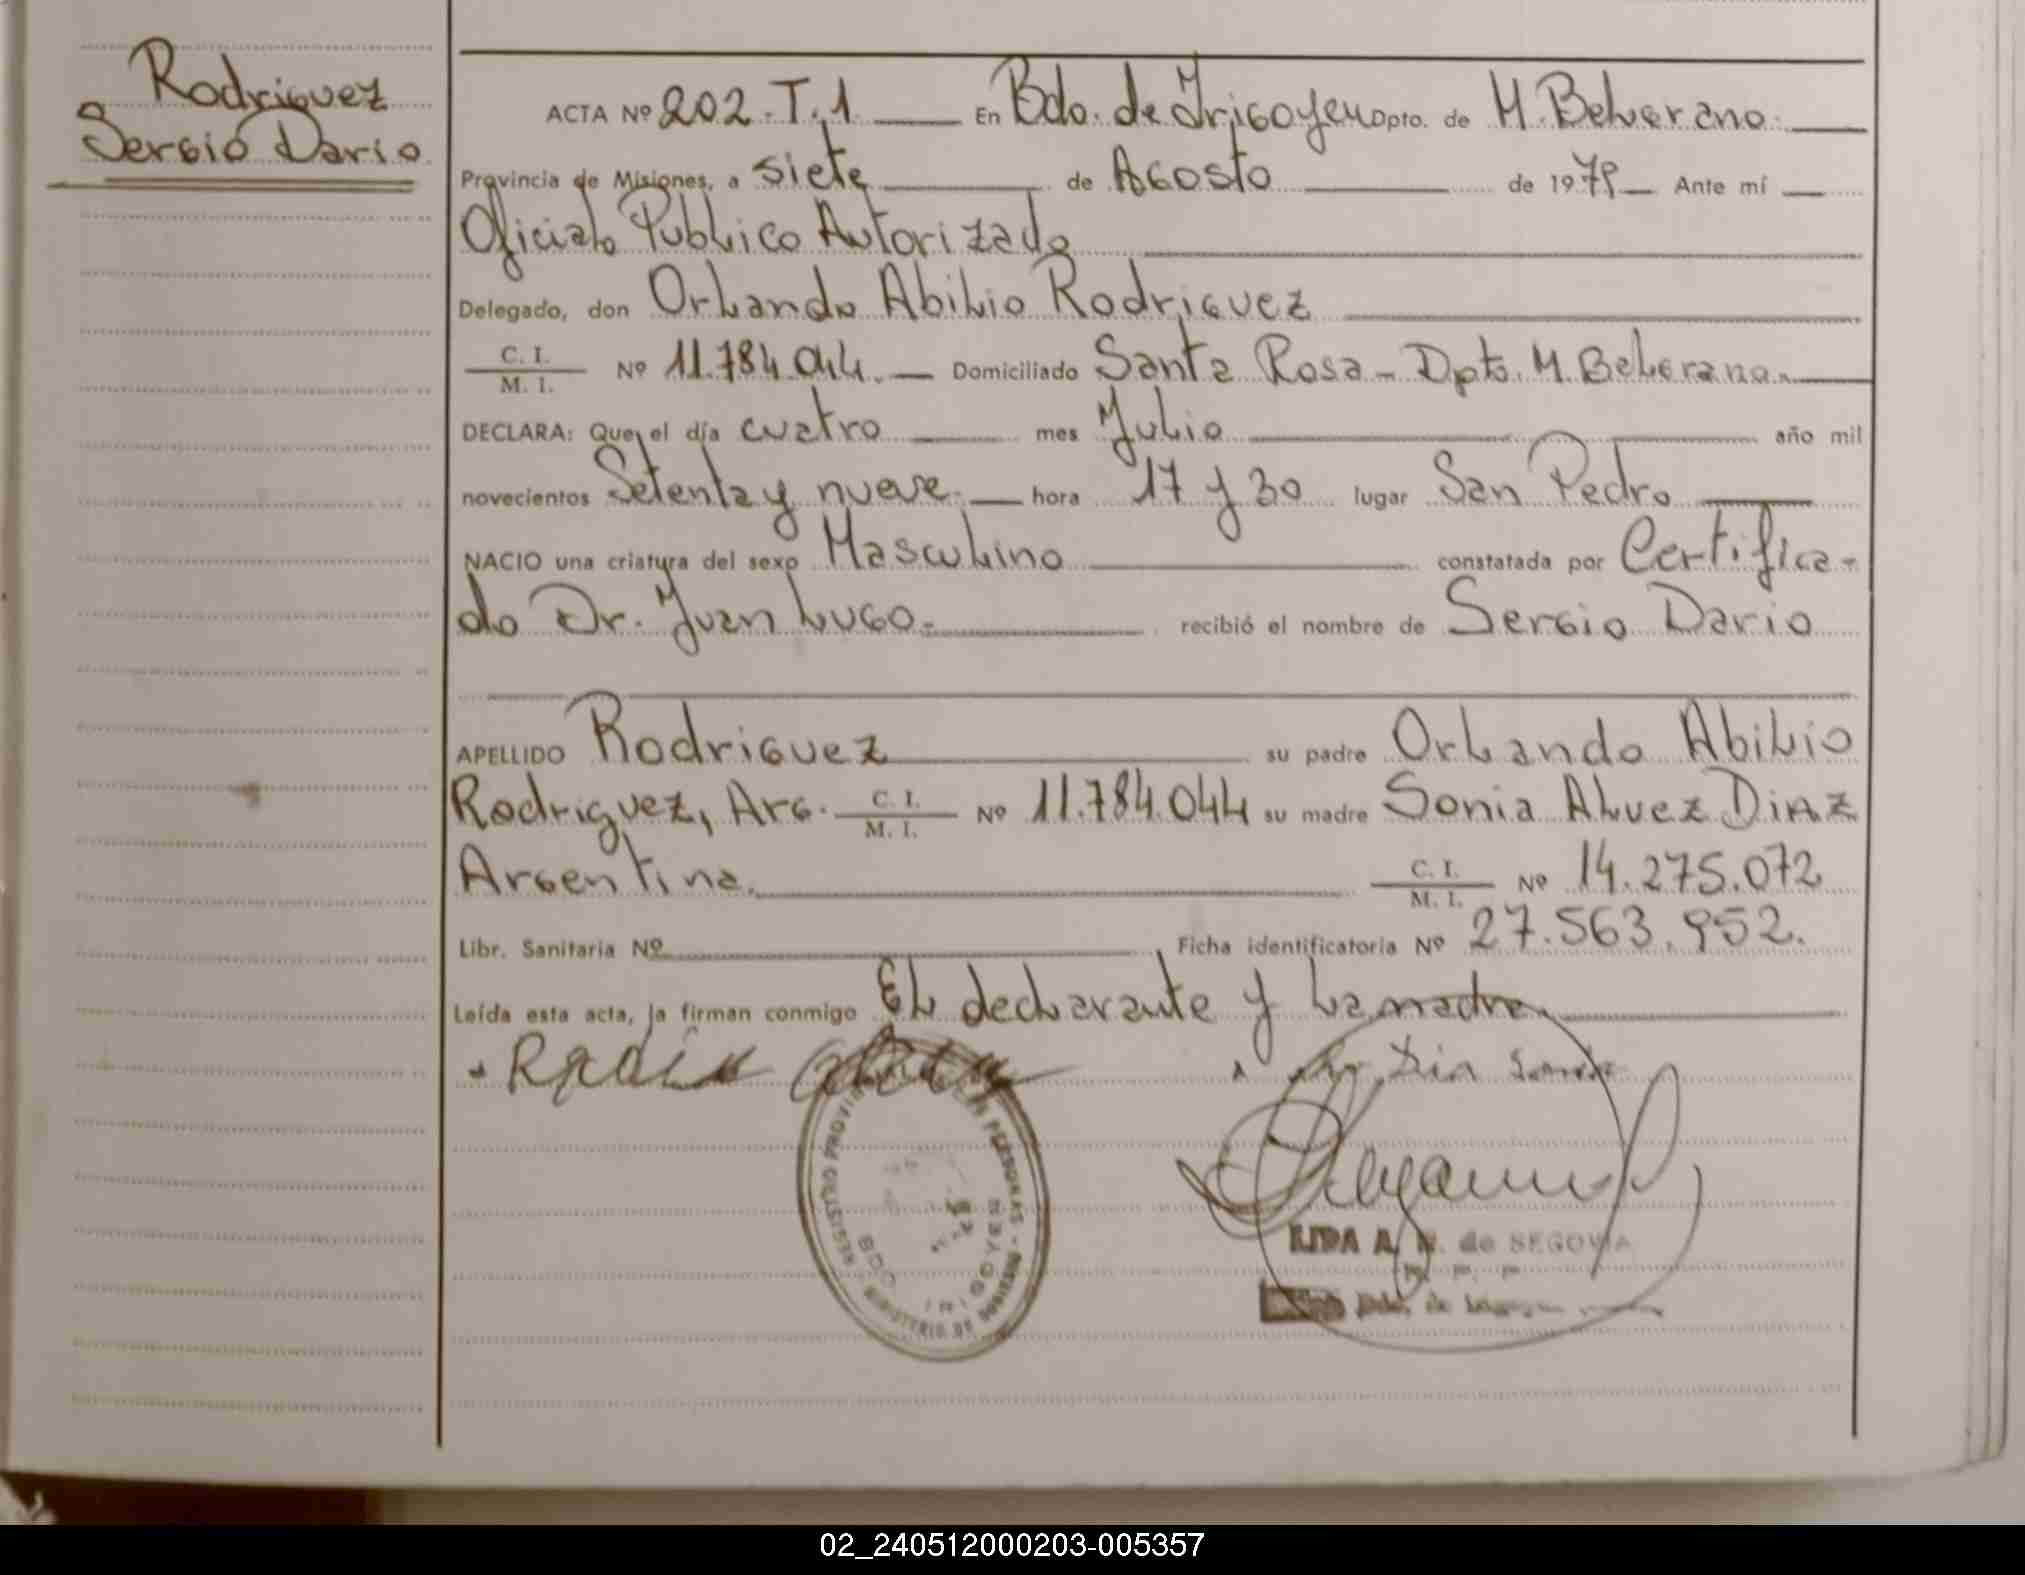 Rodriguez
Sergio Dario
ACTA Nº 202. T. 1 En Bdo. de Irigoyen Dpto. de M. Belgrano.
Provincia de Misiones, a siete de Agosto de 1979 Ante mí
Oficiala Publico Autorizado
Delegado, don Orlando Abilio Rodriguez
C. I.
M. I. Nº 11.784.044. Domiciliado Santa Rosa - Dpto. M. Belgrano.
DECLARA: Que, el día cuatro mes Julio año mil
novecientos Setenta y nueve. hora 17 y 30 lugar San Pedro
NACIO una criatura del sexo Masculino constatada por Certifica-
do Dr. Juan Lugo. recibió el nombre de Sergio Dario
APELLIDO Rodriguez su padre Orlando Abilio
Rodriguez, Arg. C. I.
M. I. Nº 11.784.044 su madre Sonia Alvez Diaz
Argentina. C. I.
M. I. Nº 14.275.072
Libr. Sanitaria Nº Ficha identificatoria Nº 27.563.952.
Leída esta acta, la firman conmigo El declarante y La madre
REGISTRO PROVIN PERSONAS - MISIONES
MINISTERIO DE
BDO IRIGOYEN
LIDA A. de SEGOVIA
02_240512000203-005357